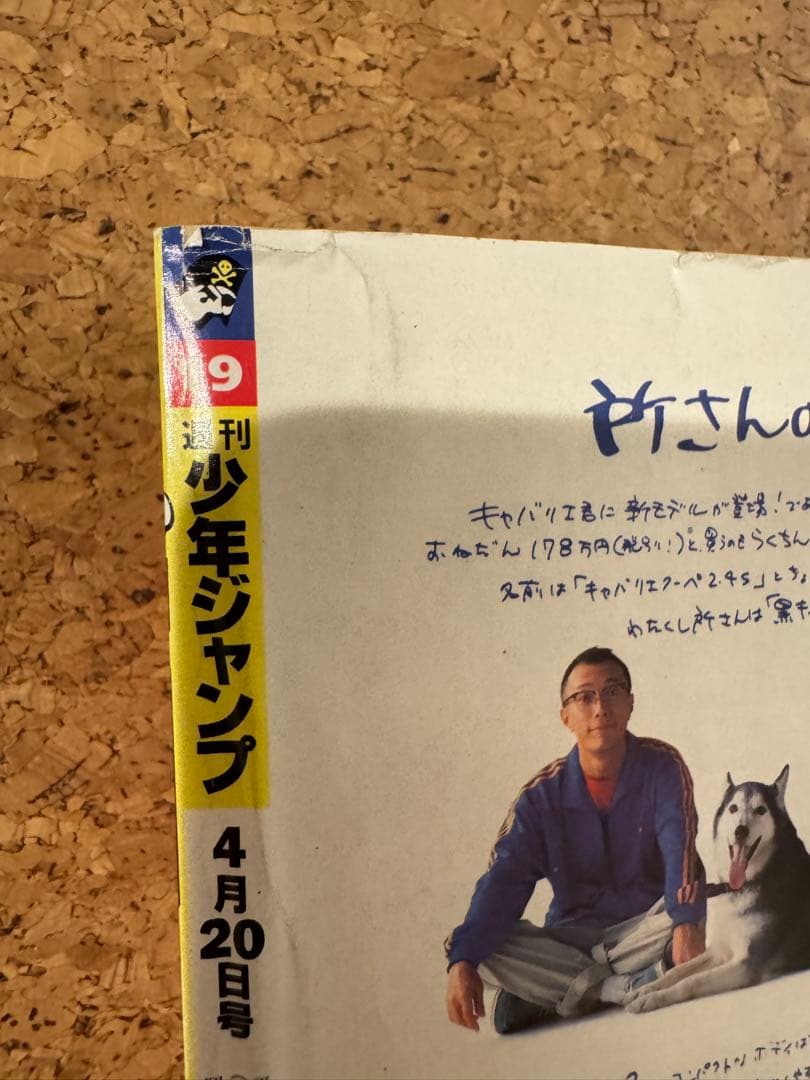 19
週刊
少年ジャンプ
4月20日号
所さんの
キャバリエ君に新モデルが登場！であ
おねだん178万円(税別！)と、買うのもらくちん
名前は「キャバリエクーペ2.4S」とちょ
わたくし所さんは「黒キ
コンパクトン ボディは